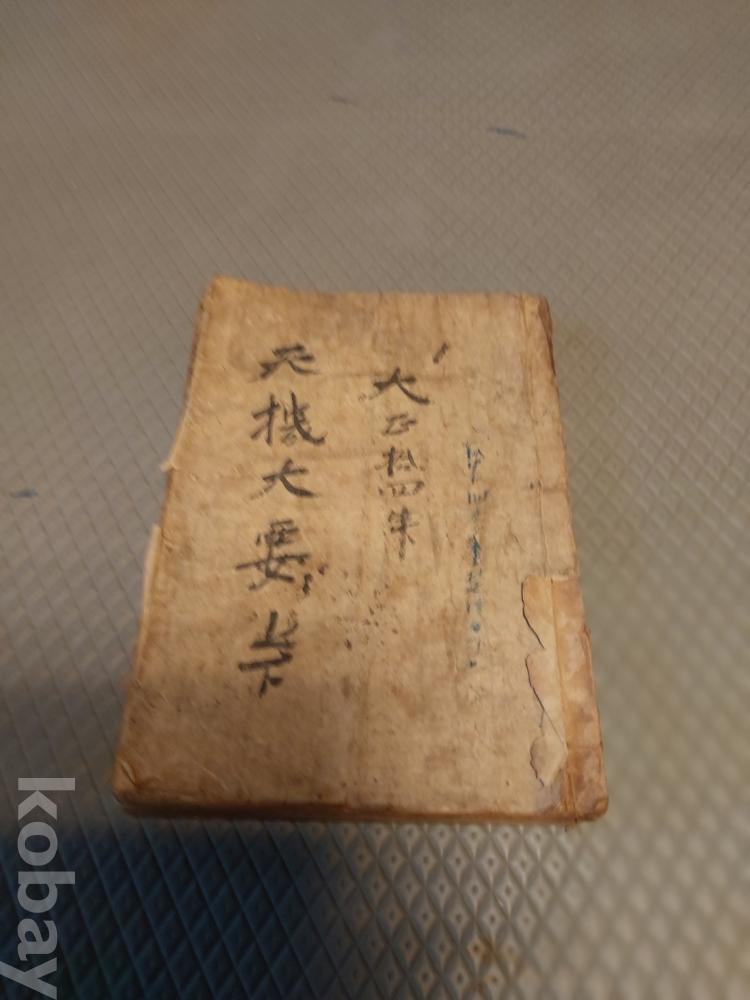 大正拾四年
天機大要 上下
kobay